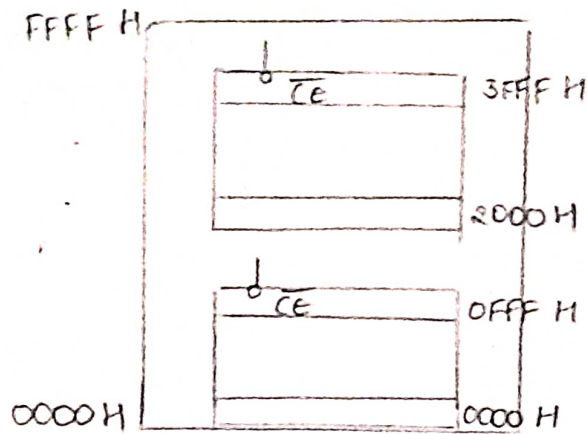 FFFF H
CE 3FFF H
2000 H
CE 0FFF H
0000 H 0000 H